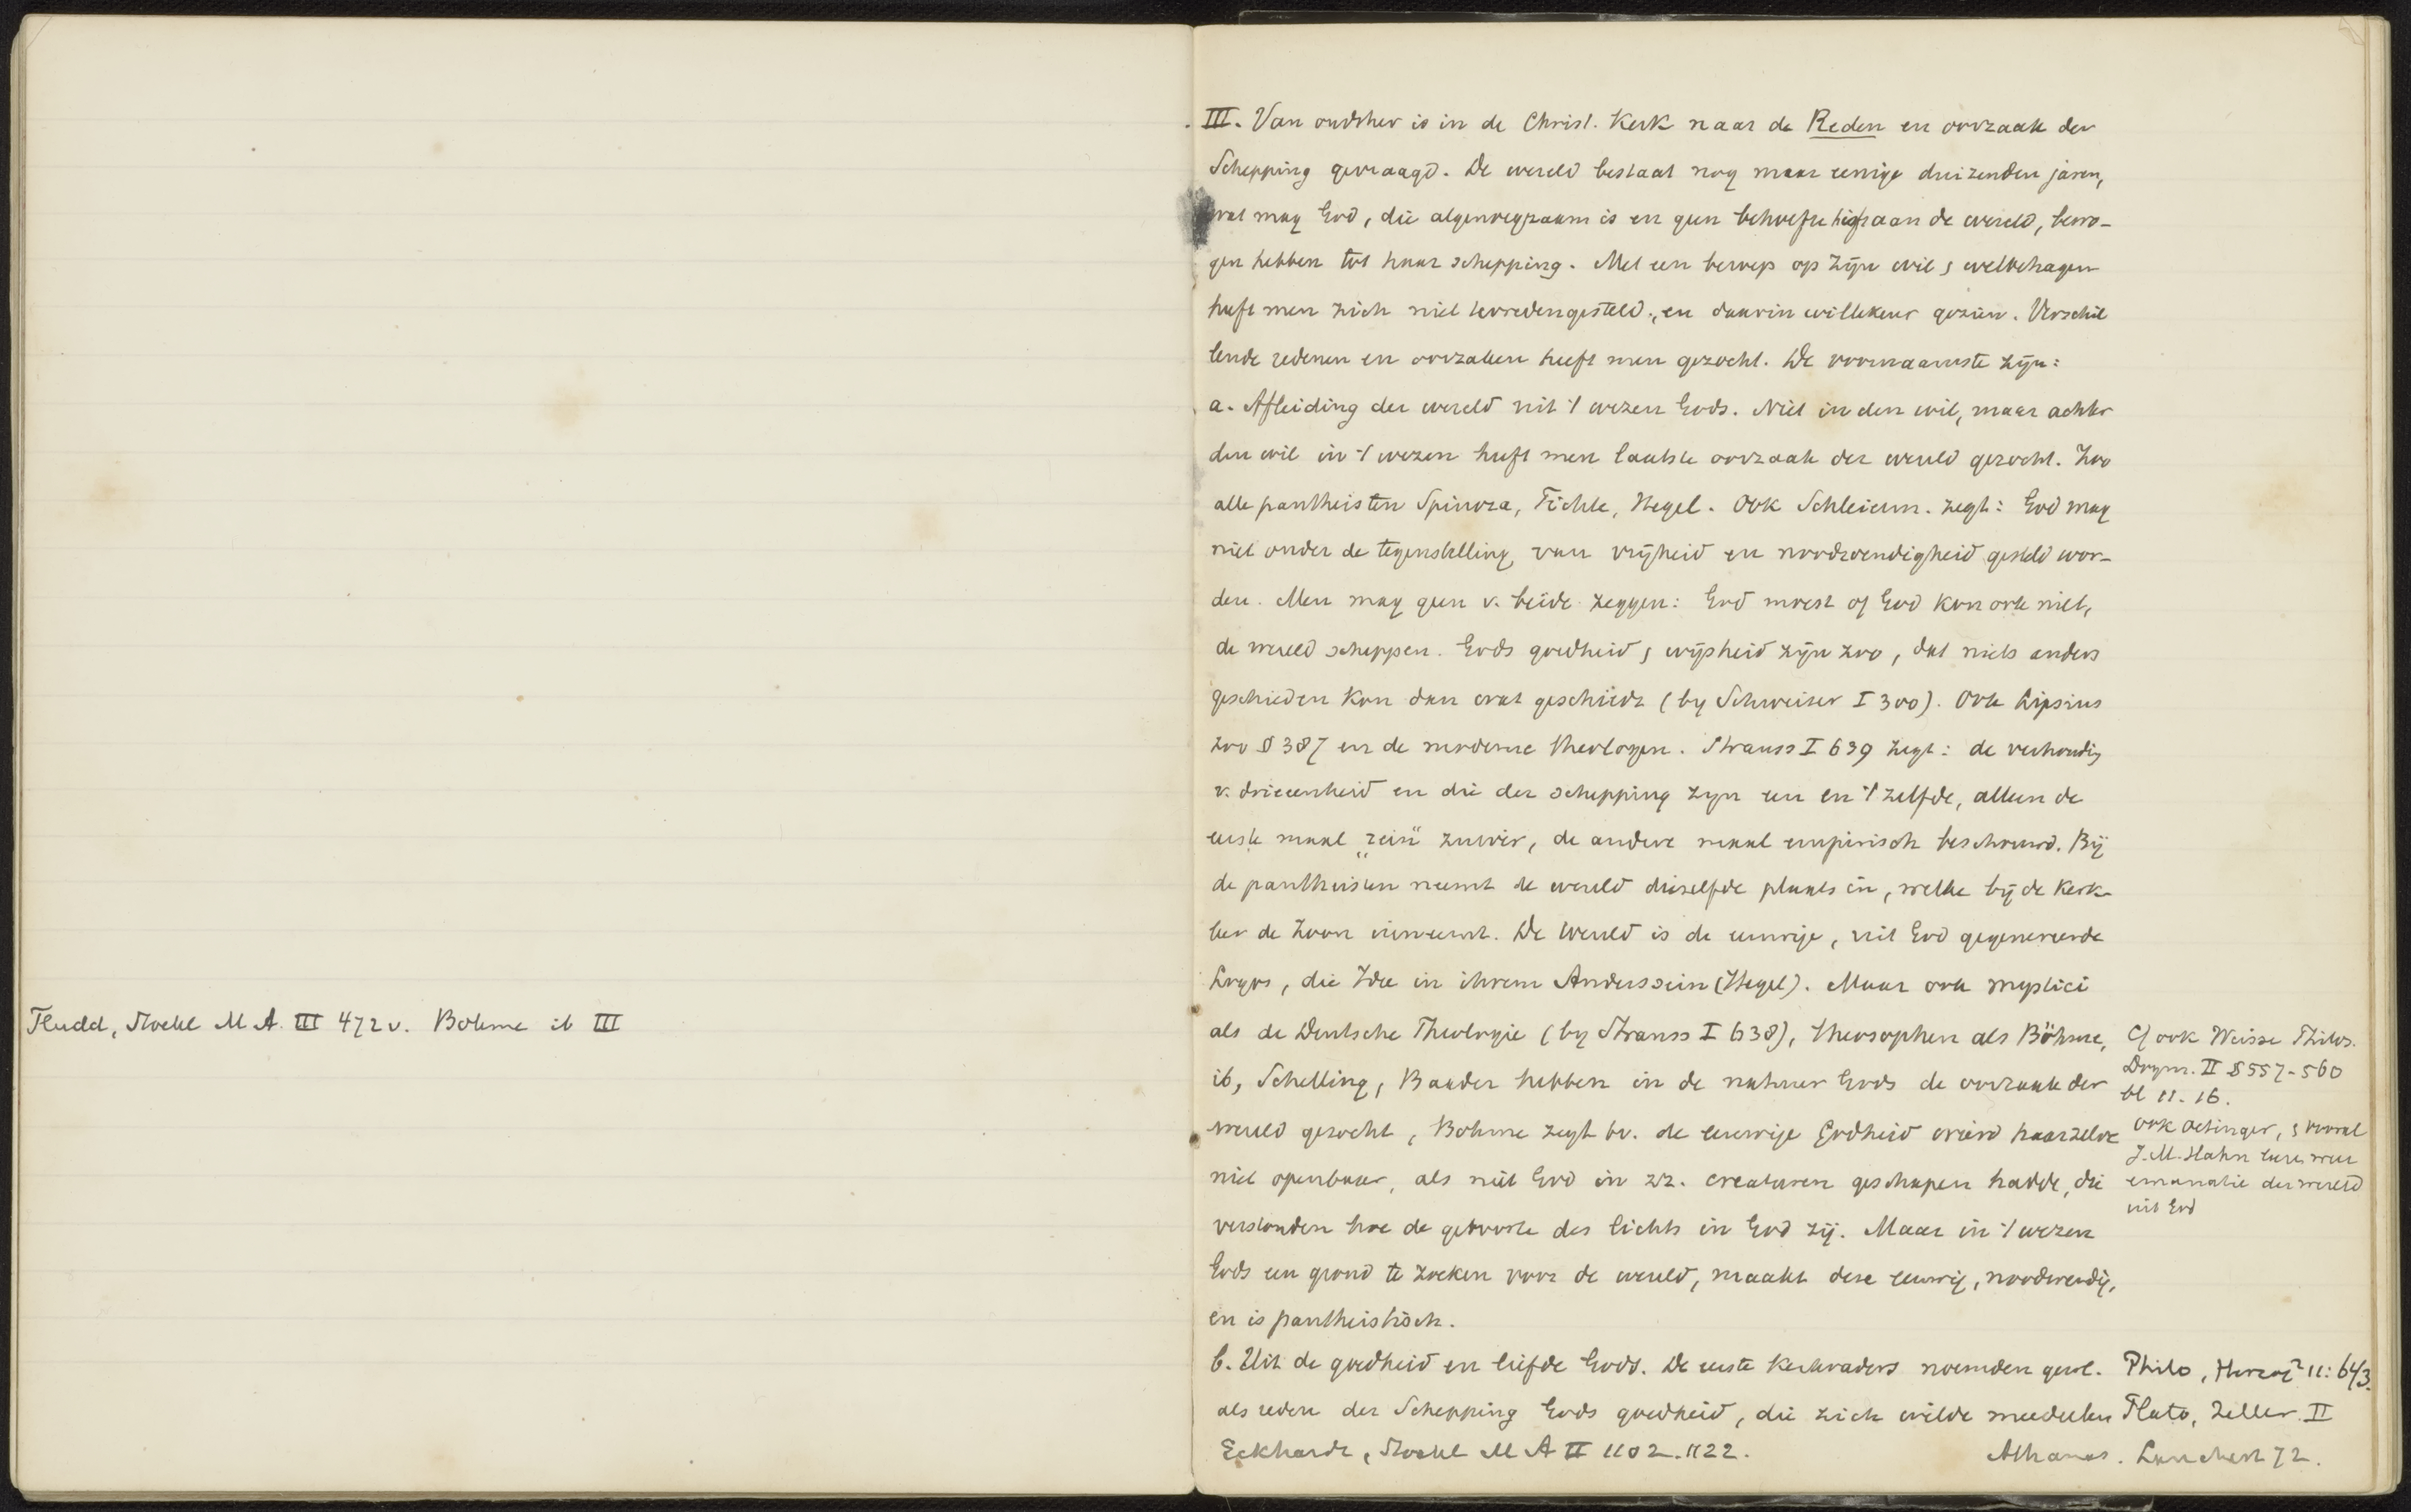 Fludd, Stoekl M A. III 472 v. Bohme ib III
III. Van oudsher is in de Christ. Kerk naar de Reden en oorzaak der
Schepping gevraagd. De wereld bestaat nog maar eenige duizenden jaren,
wat mag God, die algenoegzaam is en geen behoefte heeft aan de wereld, bewo-
gen hebben tot haar schepping. Met een beroep op zijn wil & welbehagen
heeft men zich niet tevredengesteld, en daarin willekeur gezien. Verschil
lende redenen en oorzaken heeft men gezocht. De voornaamste zijn:
a. Afleiding der wereld uit 't wezen Gods. Niet in den wil, maar achter
den wil in 't wezen heeft men laatste oorzaak der wereld gezocht. Zoo
alle pantheisten Spinoza, Fichte, Hegel. Ook Schleierm. zegt: God mag
niet onder de tegenstelling van vrijheid en noodwendigheid gesteld wor-
den. Men mag geen v. beide zeggen: God moest of God kon ook niet,
de wereld scheppen. Gods goedheid & wijsheid zijn zoo, dat niets anders
geschieden kon dan wat geschiedt (by Schweizer I 300). Ook Lipsius
zoo § 387 en de moderne theologen. Strauss I 639 zegt: de verhoudg
v. drieeenheid en die der schepping zijn een en 't zelfde, alleen de
eerste maal „rein" zuiver, de andere maal empirisch beschouwd. Bij
de pantheisten neemt de wereld diezelfde plaats in, welke bij de Kerk-
leer de Zoon inneemt. De wereld is de eeuwige, uit God gegenereerde
Logos, die Idee in ihrem Anderssein (Hegel). Maar ook mystici
als de Deutsche Theologie (by Strauss I 638), theosophen als Böhme,
ib, Schelling, Baader hebben in de natuur Gods de oorzaak der
wereld gezocht, Bohme zegt bv. de eeuwige Godheid wierd haarzelve
niet openbaar, als niet God in zz. creaturen geschapen hadde, die
verstonden hoe de geboorte des lichts in God zij. Maar in 't wezen
Gods een grond te zoeken voor de wereld, maakt deze eeuwig, noodwendig,
en is pantheistisch.
Cf ook Weisse Philos.
Dogm. II § 557-560
bl 11-16.
ook Oetinger, & vooral
J.M. Hahn leeren weer
emanatie der wereld
uit God
b. Uit de goedheid en liefde Gods. De eerste Kerkvaders noemden gew.
als reden der Schepping Gods goedheid, die zich wilde meedeelen
Philo, Herzog² 11: 643.
Plato, Zeller II
Eckhardt, Stoekl M A II 1102-1122.
Athanas.  72.